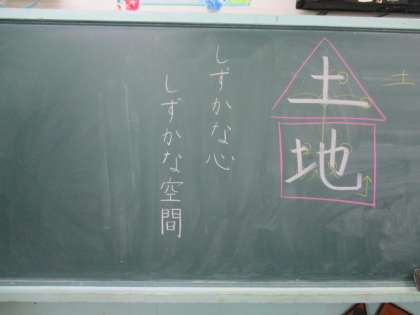 土
土地
しずかな心
しずかな空間